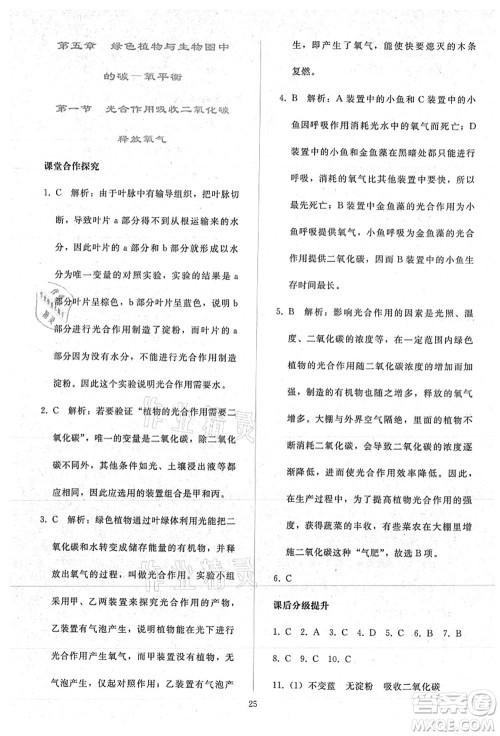 第五章　绿色植物与生物圈中
的碳—氧平衡
第一节　光合作用吸收二氧化碳
释放氧气
课堂合作探究
1. C　解析：由于叶脉中有输导组织，把叶脉切
断，导致叶片的 a 部分得不到从根运输来的水
分，因此叶片的 a 部分与 b 部分就形成以水
分为唯一变量的对照实验，实验结果是：a
部分叶片呈棕色，叶片的 b 部分呈蓝色，说
明 b 部分进行光合作用制造了淀粉，而 a 部
分因为缺水不能进行光合作用，没有制造
淀粉，因此这个实验说明光合作用需要水。
2. C　解析：若要验证“植物的光合作用需要二
氧化碳”，则变量应是二氧化碳，除二氧化
碳不同外，其他如光、土壤浸出液等都应相
同。因此，应选用的装置组合是甲和丙。
3. C　解析：绿色植物通过叶绿体利用光能把二
氧化碳和水转变成储存能量的有机物，并释
放出氧气的过程，叫作光合作用。实验小组
使用甲、乙两装置来探究光合作用的产物，
光合作用产生氧气，所以应该是乙装置有气
泡产生，而甲装置中的植物，无光，无氧
气泡产生，因此，有气泡产生的试管产生的
气体是氧气，可以使要熄灭的火苗的木条
复燃。
4. B　解析：A 装置中的小鱼和 C 装置中的小
鱼因呼吸作用消耗氧气，得不到补充而死
亡；D 装置中的小鱼和金鱼藻在黑暗处都
只进行呼吸作用，消耗氧气，所以小鱼会
最先死亡；B 装置中，金鱼藻的光合作用为
小鱼提供氧气，小鱼的呼吸作用为金鱼藻
的光合作用提供二氧化碳，因此小鱼的生
存时间最长。
5. B　解析：影响光合作用的因素是光照、温
度、二氧化碳的浓度等，在一定范围内绿色
植物的光合作用随二氧化碳的浓度、光照强
度增加而增强。大棚与外界空气隔绝，大棚
里的农作物因为进行光合作用制造有机物不
断消耗二氧化碳，使得二氧化碳的浓度不断
降低，降低了光合作用效率。因此，为了提
高大棚作物的产量，向大棚中施加一定量的
二氧化碳，这种“气肥”，故选 B。
6. C
课后分级提升
1. C　2. C　3. A　4. D　5. C　6. D　7. B
8. C　9. C　10. D
11.（1）不变蓝　无淀粉　吸收二氧化碳
25
作业精灵
作业精灵